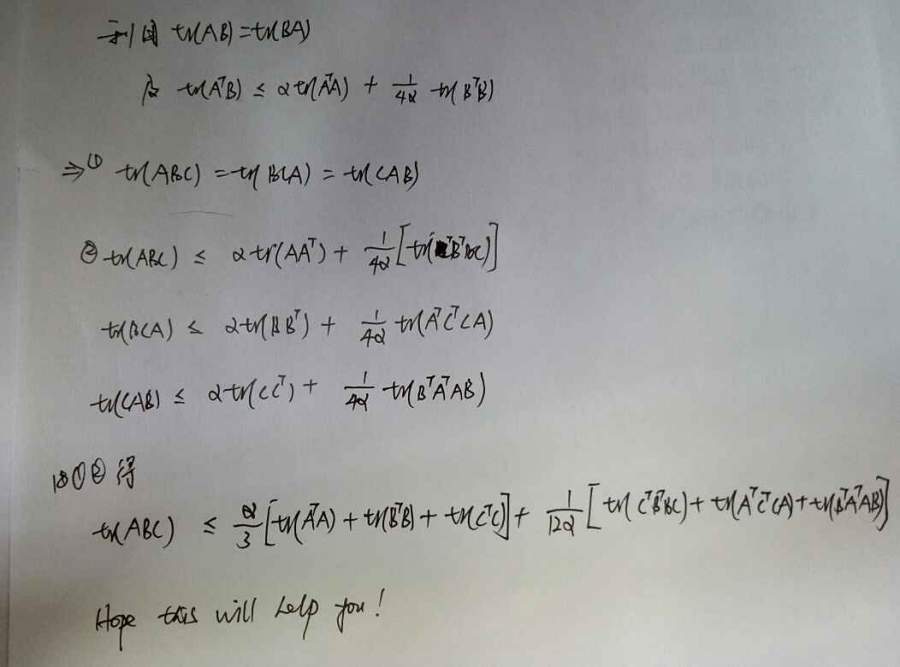 利用 tr(AB)=tr(BA)
及 tr(AᵀB) ≤ α tr(AᵀA) + 1/4α tr(BᵀB)
⇒① tr(ABC) = tr(BCA) = tr(CAB)
② tr(ABC) ≤ α tr(AAᵀ) + 1/4α [tr(CᵀBᵀBC)]
tr(BCA) ≤ α tr(BBᵀ) + 1/4α tr(AᵀCᵀCA)
tr(CAB) ≤ α tr(CCᵀ) + 1/4α tr(BᵀAᵀAB)
①② 得
tr(ABC) ≤ α/3 [tr(AᵀA) + tr(BᵀB) + tr(CᵀC)] + 1/12α [tr(CᵀBᵀBC) + tr(AᵀCᵀCA) + tr(BᵀAᵀAB)]
Hope this will help you!